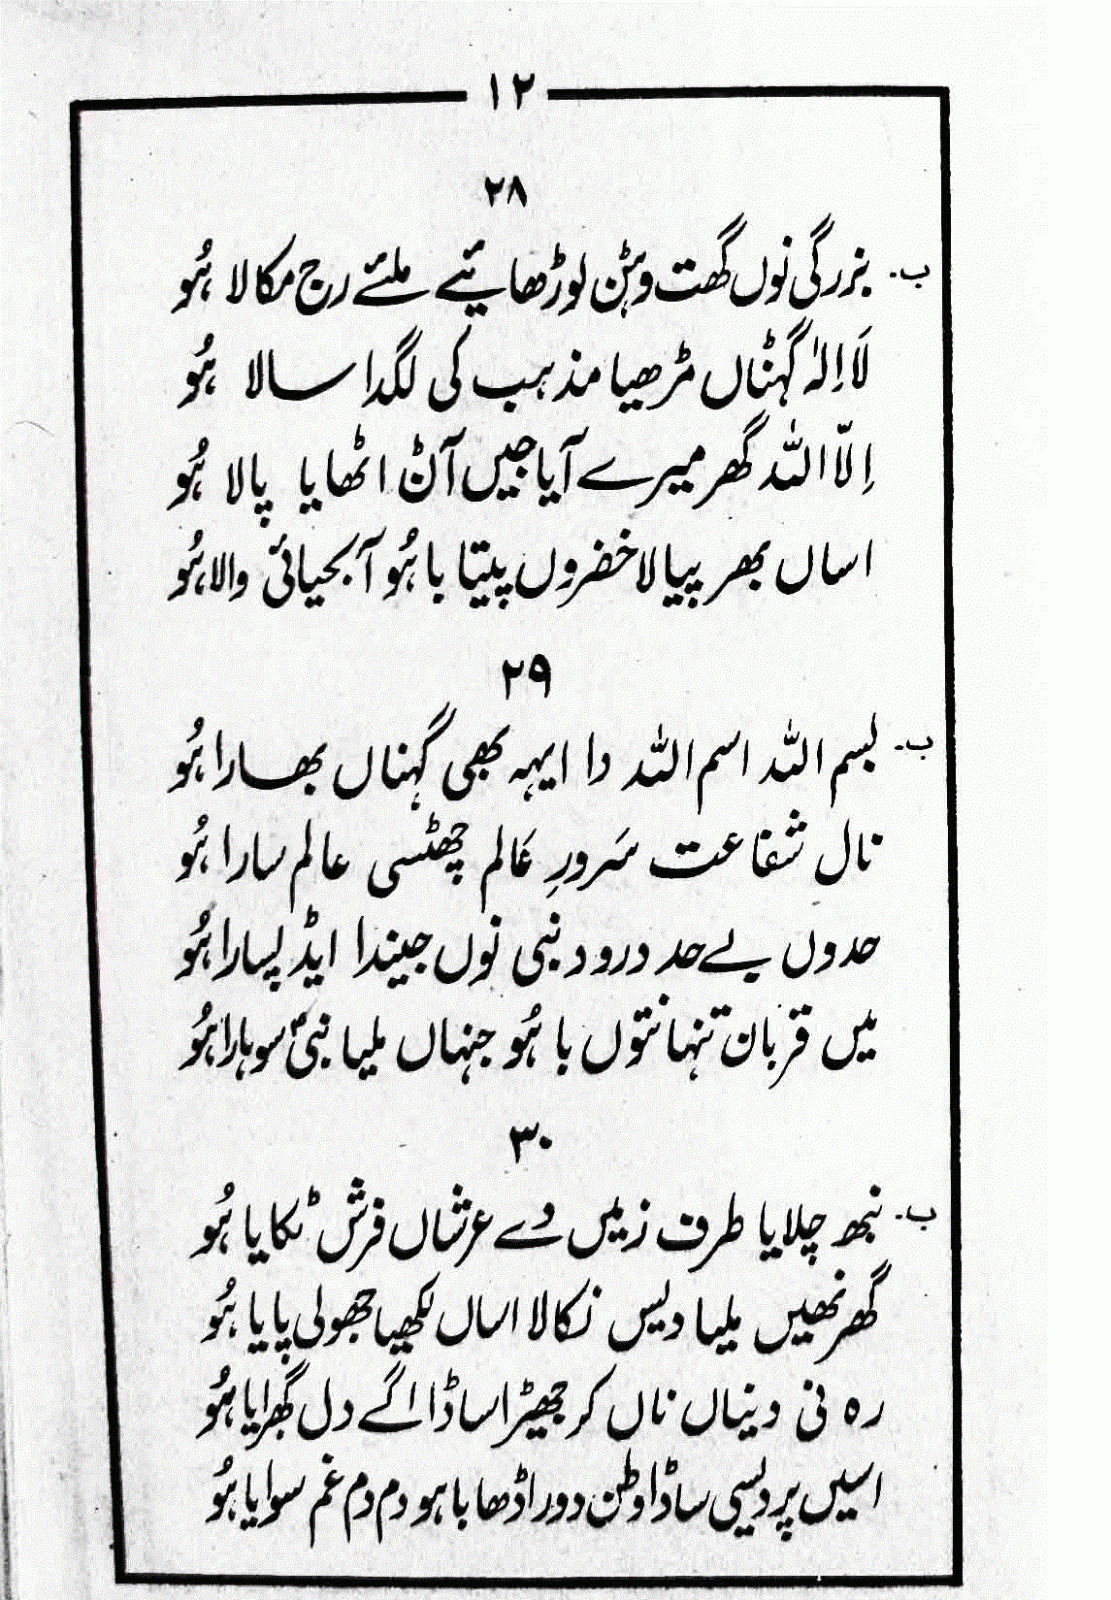 ۱۲
۲۸
ب۔ بزرگی نوں گھت وہٹن لوڑھائیے ملئے رج مکالا ہُو
لَا اِلٰہ گہٹناں مڑھیا مذہب کی لگدا سالا ہُو
اِلّا اللہ گھر میرے آیا جیں آن اٹھایا پالا ہُو
اساں بھر پیالا خضروں پیتا باہُو آبحیاتی والا ہُو
۲۹
ب۔ بسم اللہ اسم اللہ دا ایہہ بھی گہناں بھارا ہُو
نال شفاعت سَرورِ عَالم چھٹسی عالم سارا ہُو
حدوں بےحد درود نبی نوں جیندا ایڈ پسارا ہُو
میں قربان تنہانتوں باہُو جنہاں ملیا نبیؐ سوہارا ہُو
۳۰
ب۔ نبھ چلایا طرف زمیں دے عرشاں فرش ٹکایا ہُو
گھر نھیں ملیا دیس نکالا اساں لکھیا جھولی پایا ہُو
رہ نی دنیاں ناں کر جھیڑا ساڈا اگے دل گھبرایا ہُو
اسیں پردیسی ساڈا وطن دوراڈھا باہو دم دم غم سوایا ہُو